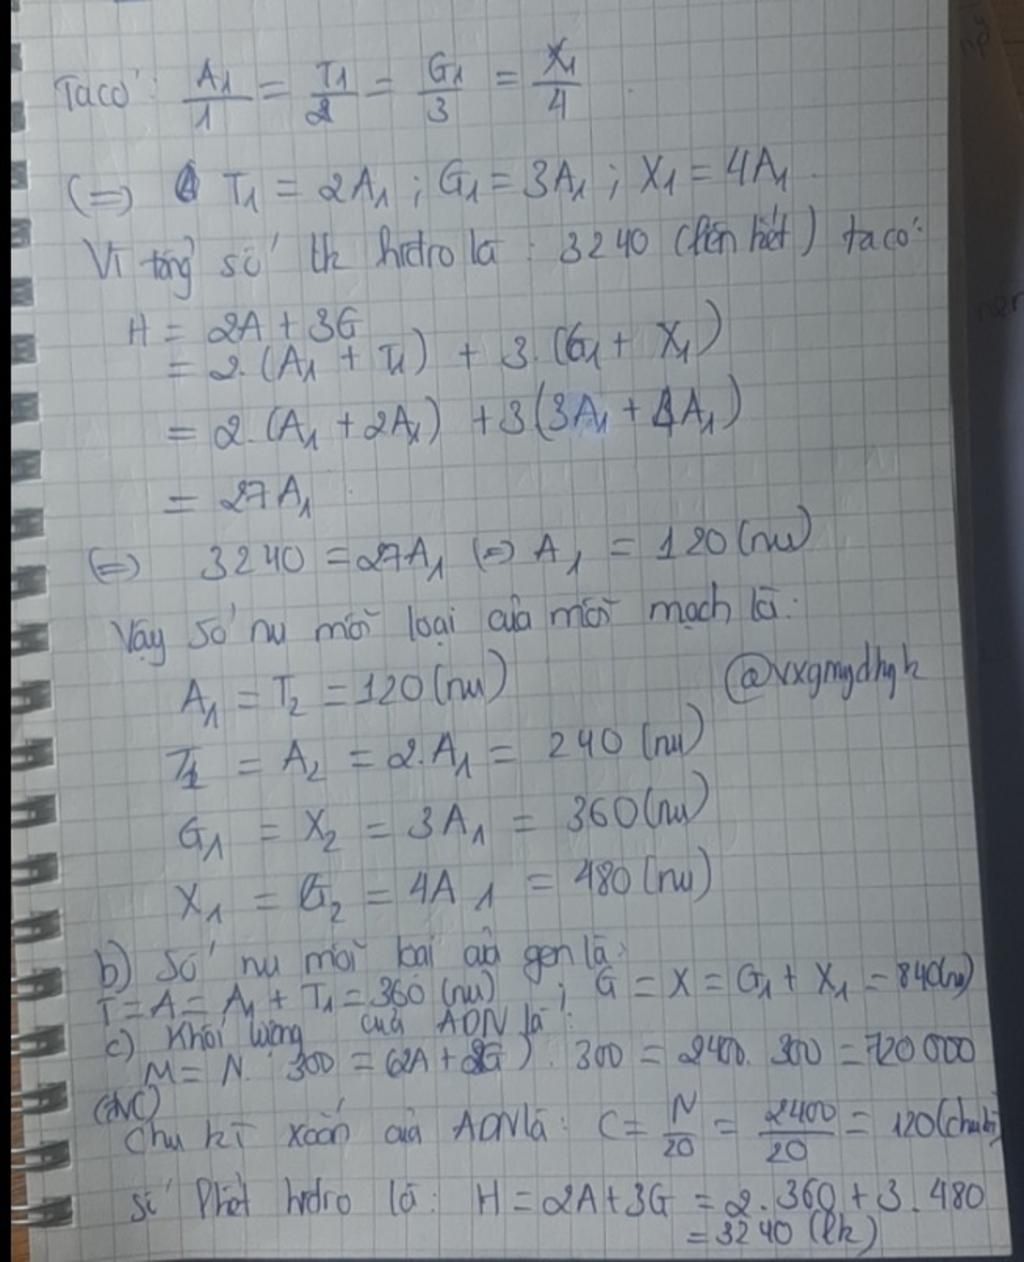 Ta có: A₁/1 = T₁/2 = G₁/3 = X₁/4
(=) T₁ = 2A₁ ; G₁ = 3A₁ ; X₁ = 4A₁.
Vì tổng số lk hidro là : 3240 (liên kết) ta có:
H = 2A + 3G
= 2.(A₁ + T₁) + 3.(G₁ + X₁)
= 2.(A₁ + 2A₁) + 3(3A₁ + 4A₁)
= 27A₁
(=) 3240 = 27A₁ (=) A₁ = 120 (nu)
Vậy số nu mỗi loại của mỗi mạch là:
A₁ = T₂ = 120 (nu)
@vxgmydhyk
T₁ = A₂ = 2.A₁ = 240 (nu)
G₁ = X₂ = 3A₁ = 360 (nu)
X₁ = G₂ = 4A₁ = 480 (nu)
b) Số nu mỗi loại của gen là:
T = A = A₁ + T₁ = 360 (nu) ; G = X = G₁ + X₁ = 840 (nu)
c) Khối lượng của ADN là:
M = N. 300 = (2A + 2G). 300 = 2400. 300 = 720 000
(đvC)
Chu kì xoắn của ADN là: C = N/20 = 2400/20 = 120 (chu kì)
Số hidro là: H = 2A + 3G = 2.360 + 3.480
= 3240 (lk)